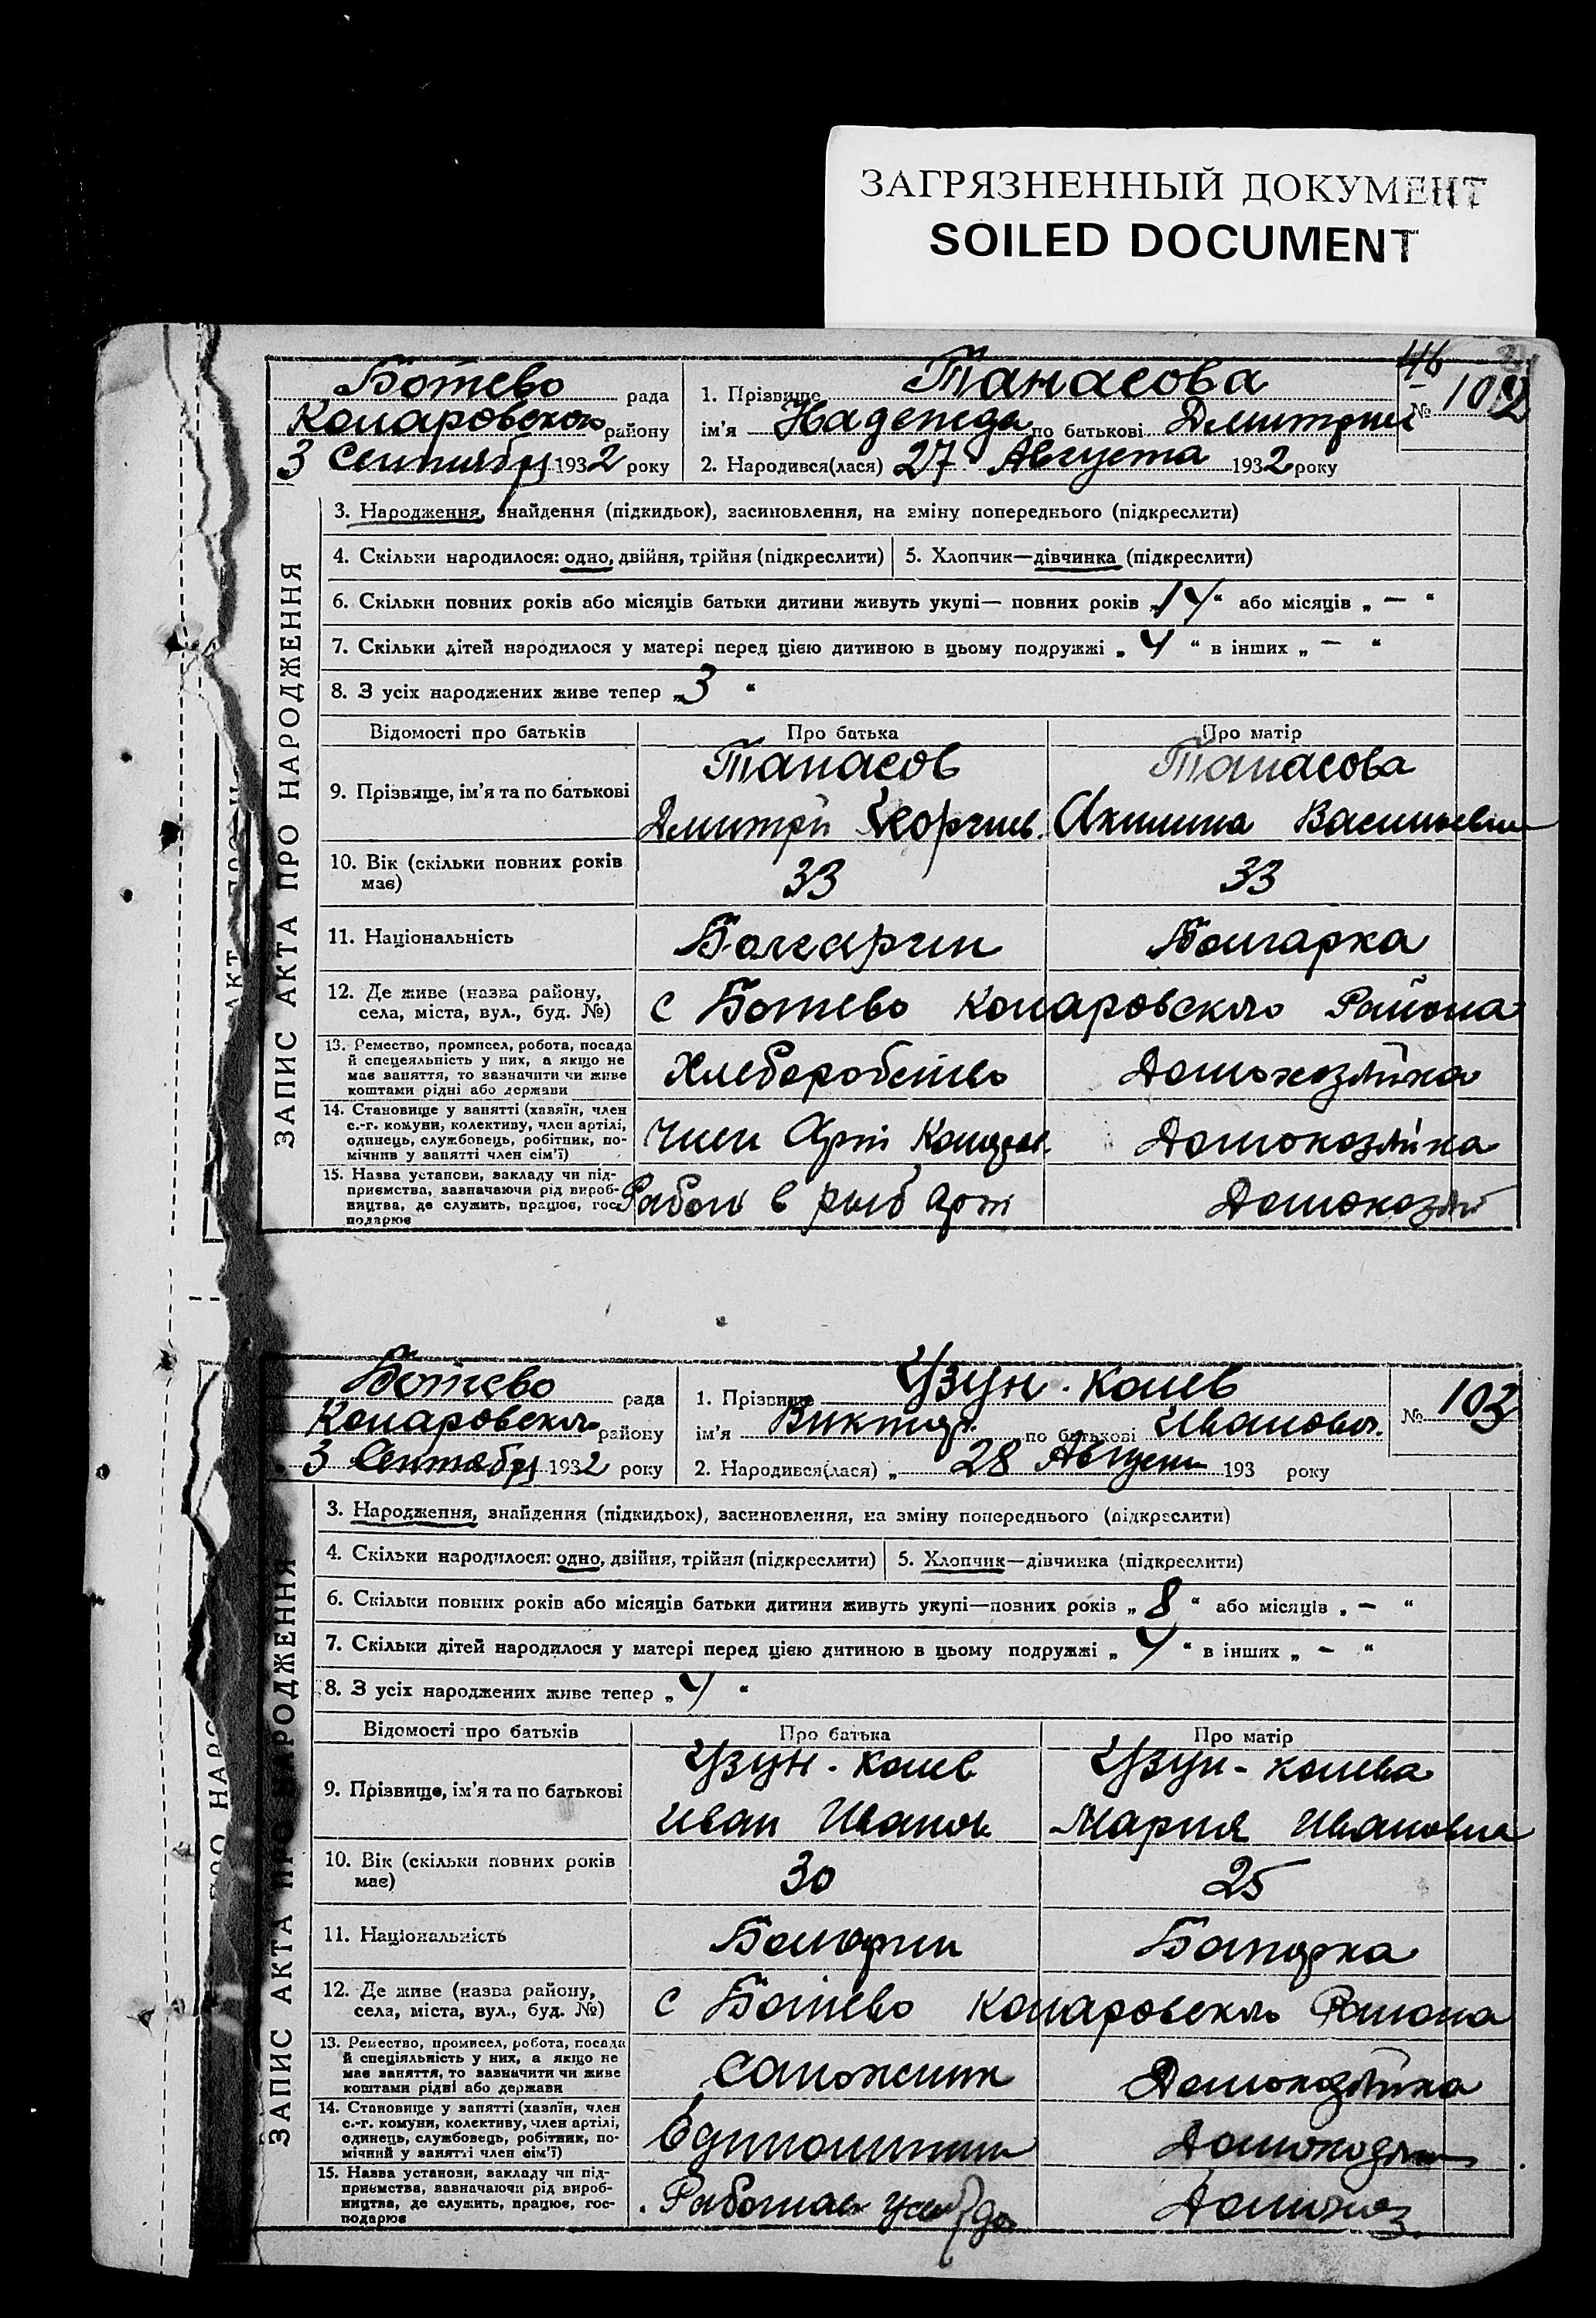 ЗАГРЯЗНЕННЫЙ ДОКУМЕНТ
SOILED DOCUMENT
46
Ботево рада
Коларовского району
3 Сентября 1932 року
1. Прізвище Танасова
ім'я Надежда по батькові Дмитриев
2. Народився(лася) 27 Августа 1932 року
№ 102
ЗАПИС АКТА ПРО НАРОДЖЕННЯ
3. Народження, знайдення (підкидьок), засиновлення, на зміну попереднього (підкреслити)
4. Скільки народилося: одно, двійня, трійня (підкреслити) 5. Хлопчик—дівчинка (підкреслити)
6. Скільки повних років або місяців батьки дитини живуть укупі— повних років „14“ або місяців „ — “
7. Скільки дітей народилося у матері перед цією дитиною в цьому подружжі „ 4 “ в інших „ — “
8. З усіх народжених живе тепер „3 “
Відомості про батьків Про батька Про матір
9. Прізвище, ім'я та по батькові
Танасов Танасова
Дмитрий Георгиев. Акилина Васильевна
10. Вік (скільки повних років має) 33 33
11. Національність Болгарин Болгарка
12. Де живе (назва району, села, міста, вул., буд. №) с Ботево Коларовского Района
13. Ремество, промисел, робота, посада й спецеяльність у них, а якщо не має заняття, то зазначити чи живе коштами рідні або держави
Хлеборобство Домохозяйка
14. Становище у занятті (хазяїн, член с.-г. комуни, колективу, член артілі, одинець, службовець, робітник, помічнив у занятті член сім'ї)
Член Арт Домохозяйка
15. Назва установи, закладу чи підприємства, зазначаючи рід виробництва, де служить, працює, господарює
Работ в рыб арт Домохозяй
Ботево рада
Коларовского району
3 Сентября 1932 року
1. Прізвище Узун-Колев
ім'я Виктор по батькові Иванович.
2. Народився(лася) „ 28 Августа 193 року
№ 103
ЗАПИС АКТА ПРО НАРОДЖЕННЯ
3. Народження, знайдення (підкидьох), засиновлення, на зміну попереднього (підкреслити)
4. Скільки народилося: одно, двійня, трійня (підкреслити) 5. Хлопчик—дівчинка (підкреслити)
6. Скільки повних років або місяців батьки дитини живуть укупі—повних років „ 8 “ або місяців „ — “
7. Скільки дітей народилося у матері перед цією дитиною в цьому подружжі „ 4 “ в інших „ — “
8. З усіх народжених живе тепер „ 4 “
Відомості про батьків Про батька Про матір
9. Прізвище, ім'я та по батькові
Узун-Колев Узун-Колева
Иван Иванов Мария Ивановна
10. Вік (скільки повних років має) 30 25
11. Національність Болгарин Болгарка
12. Де живе (назва району, села, міста, вул., буд. №) с Ботево Коларовского Района
13. Ремество, промисел, робота, посада й спеціяльність у них, а якщо не має заняття, то зазначити чи живе коштами рідні або держави
Сапожник Домохозяйка
14. Становище у занятті (хазяїн, член с.-г. комуни, колективу, член артілі, одинець, службовець, робітник, помічний у занятті член сім'ї)
Единоличник Домохозяй
15. Назва установи, закладу чи підприємства, зазначаючи рід виробництва, де служить, працює, господарює
Работает Домохоз.